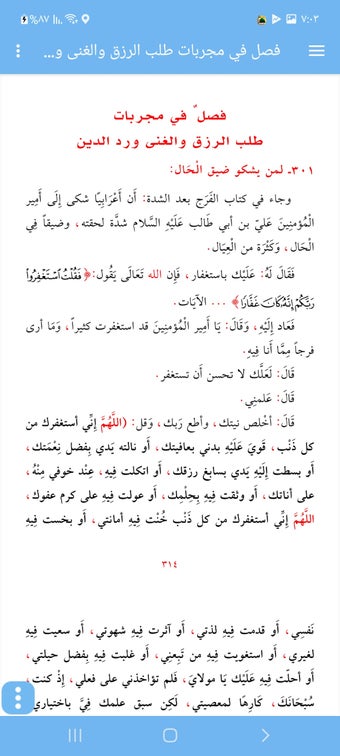 ٧:٠٣
٨٧%
فصل في مجربات طلب الرزق والغنى و...
فصلٌ في مجربات
طلب الرزق والغنى ورد الدين
٣٠١ـ لمن يشكو ضيق الْحَال:
وجاء في كتاب الفَرَج بعد الشدة: أَن أَعْرَابِيًا شكى إِلَى أَمِير
الْمُؤمنِينَ عَليّ بن أبي طَالب عَلَيْهِ السَّلَام شدَّة لحقته، وضيقاً فِي
الْحَال، وَكَثْرَة من الْعِيَال.
فَقَالَ لَهُ: عَلَيْك باستغفار، فَإِن الله تَعَالَى يَقُول: ﴿فَقُلْتُ اسْتَغْفِرُوا
رَبَّكُمْ إِنَّهُ كَانَ غَفَّارًا﴾ ... الْآيَات.
فَعَاد إِلَيْهِ، وَقَالَ: يَا أَمِير الْمُؤمنِينَ قد استغفرت كثيراً، وَمَا أرى
فرجاً مِمَّا أَنا فِيهِ.
قَالَ: لَعَلَّك لا تحسن أَن تستغفر.
قَالَ: عَلمنِي.
قَالَ: أخْلص نيتك، وأطع رَبك، وَقل: (اللَّهُمَّ إِنِّي أستغفرك من
كل ذَنْب، قَوِيَ عَلَيْهِ بدني بعافيتك، أَو نالته يَدي بِفضل نِعْمَتك،
أَو بسطت إِلَيْهِ يَدي بسابغ رزقك، أَو اتكلت فِيهِ، عِنْد خوفي مِنْهُ،
على أناتك، أَو وثقت فِيهِ بِحِلْمِك، أَو عولت فِيهِ على كرم عفوك،
اللَّهُمَّ إِنِّي أستغفرك من كل ذَنْب خُنْت فِيهِ أمانتي، أَو بخست فِيهِ
٣١٤
نَفسِي، أَو قدمت فِيهِ لذتي، أَو آثرت فِيهِ شهوتي، أَو سعيت فِيهِ
لغيري، أَو استغويت فِيهِ من تَبِعنِي، أَو غلبت فِيهِ بِفضل حيلتي،
أَو أحلّت فِيهِ عَلَيْك يَا مولايَ، فَلم تؤاخذني على فعلي، إِذْ كنت،
سُبْحَانَكَ، كَارِهًا لمعصيتي، لَكِن سبق علمك فِيَّ باختياري،